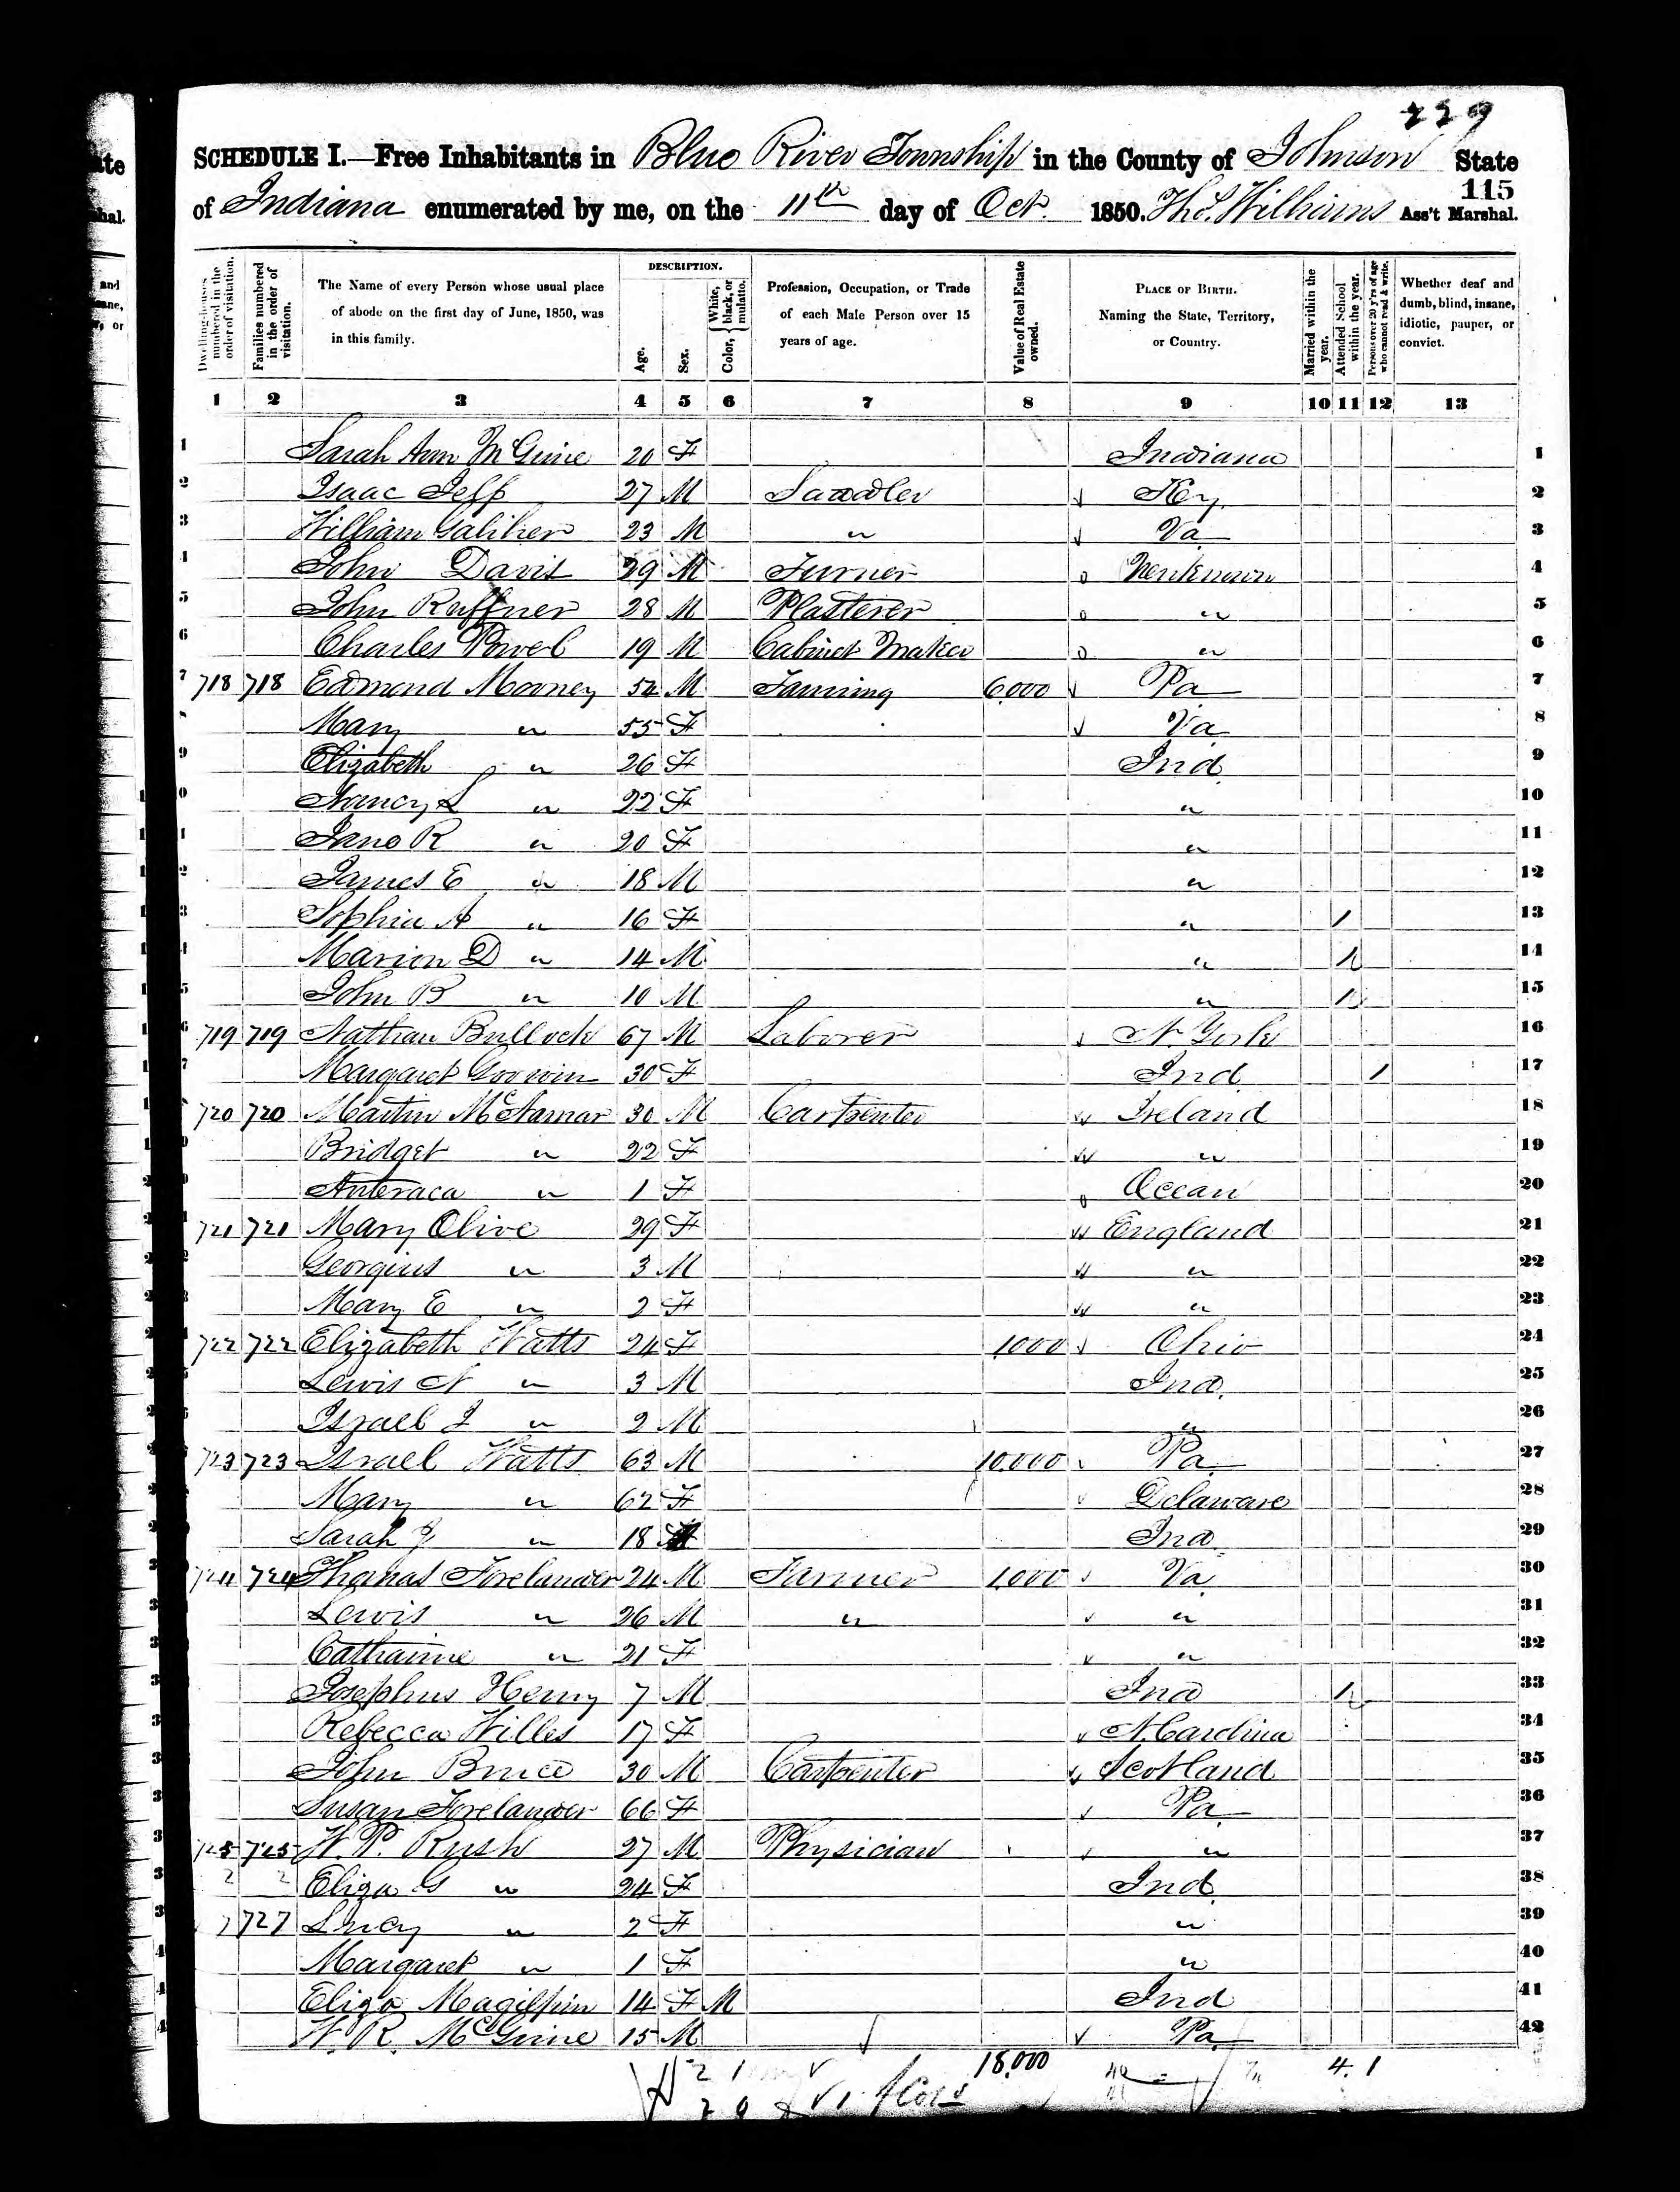 229
SCHEDULE I.—Free Inhabitants in Blue River Township in the County of Johnson State
115
of Indiana enumerated by me, on the 11th day of Oct. 1850. Thos. Williams Ass't Marshal.
Dwelling-houses numbered in the order of visitation.
Families numbered in the order of visitation.
The Name of every Person whose usual place of abode on the first day of June, 1850, was in this family.
DESCRIPTION.
Age.
Sex.
Color, { White, black, or mulatto.
Profession, Occupation, or Trade of each Male Person over 15 years of age.
Value of Real Estate owned.
PLACE OF BIRTH. Naming the State, Territory, or Country.
Married within the year.
Attended School within the year.
Persons over 20 y'rs of age who cannot read & write.
Whether deaf and dumb, blind, insane, idiotic, pauper, or convict.
1 2 3 4 5 6 7 8 9 10 11 12 13
1 Sarah Ann McGuire 20 F Indiana 1
2 Isaac Jeff 27 M Saddler Key 2
3 William Galiher 23 M " Va 3
4 John Davis 29 M Turner Unknown 4
5 John Ruffner 28 M Plasterer " 5
6 Charles Powel 19 M Cabinet Maker " 6
7 718 718 Edmond Mooney 54 M Tanning 6,000 Pa 7
Mary " 55 F Va 8
9 Elizabeth " 26 F Ind 9
Nancy L " 22 F " 10
Jane R " 20 F " 11
James E " 18 M " 12
Sophia A " 16 F " 1 13
Marion D " 14 M " 1 14
John B " 10 M " 1 15
719 719 Nathan Bullock 67 M Laborer N. York 16
Margaret Goodwin 30 F Ind 1 17
720 720 Martin McNamar 30 M Carpenter Ireland 18
Bridget " 22 F " 19
" 1 F Ocean 20
721 721 Mary Olive 29 F England 21
Georgius " 3 M " 22
Mary E " 2 F " 23
722 722 Elizabeth Watts 24 F 1000 Ohio 24
Lewis N " 3 M Ind. 25
Israel J " 2 M " 26
723 723 Israel Watts 63 M 10,000 Pa 27
Mary " 62 F Delaware 28
Sarah J " 18 F Ind 29
724 724 Thomas Forelander 24 M Farmer 1,000 Va 30
Lewis " 26 M " " 31
Catharine " 21 F " 32
Josephus Henry 7 M Ind 1 33
Rebecca Willes 17 F N. Carolina 34
John Bruce 30 M Carpenter Scotland 35
Susan Forelander 66 F Pa 36
725 725 W. P. Rush 27 M Physician " 37
Eliza G " 24 F Ind. 38
7 727 Lucy " 2 F " 39
Margaret " 1 F " 40
Eliza Magilpin 14 F M Ind 41
W. R. McGuire 15 M Pa 42
18,000 4. 1